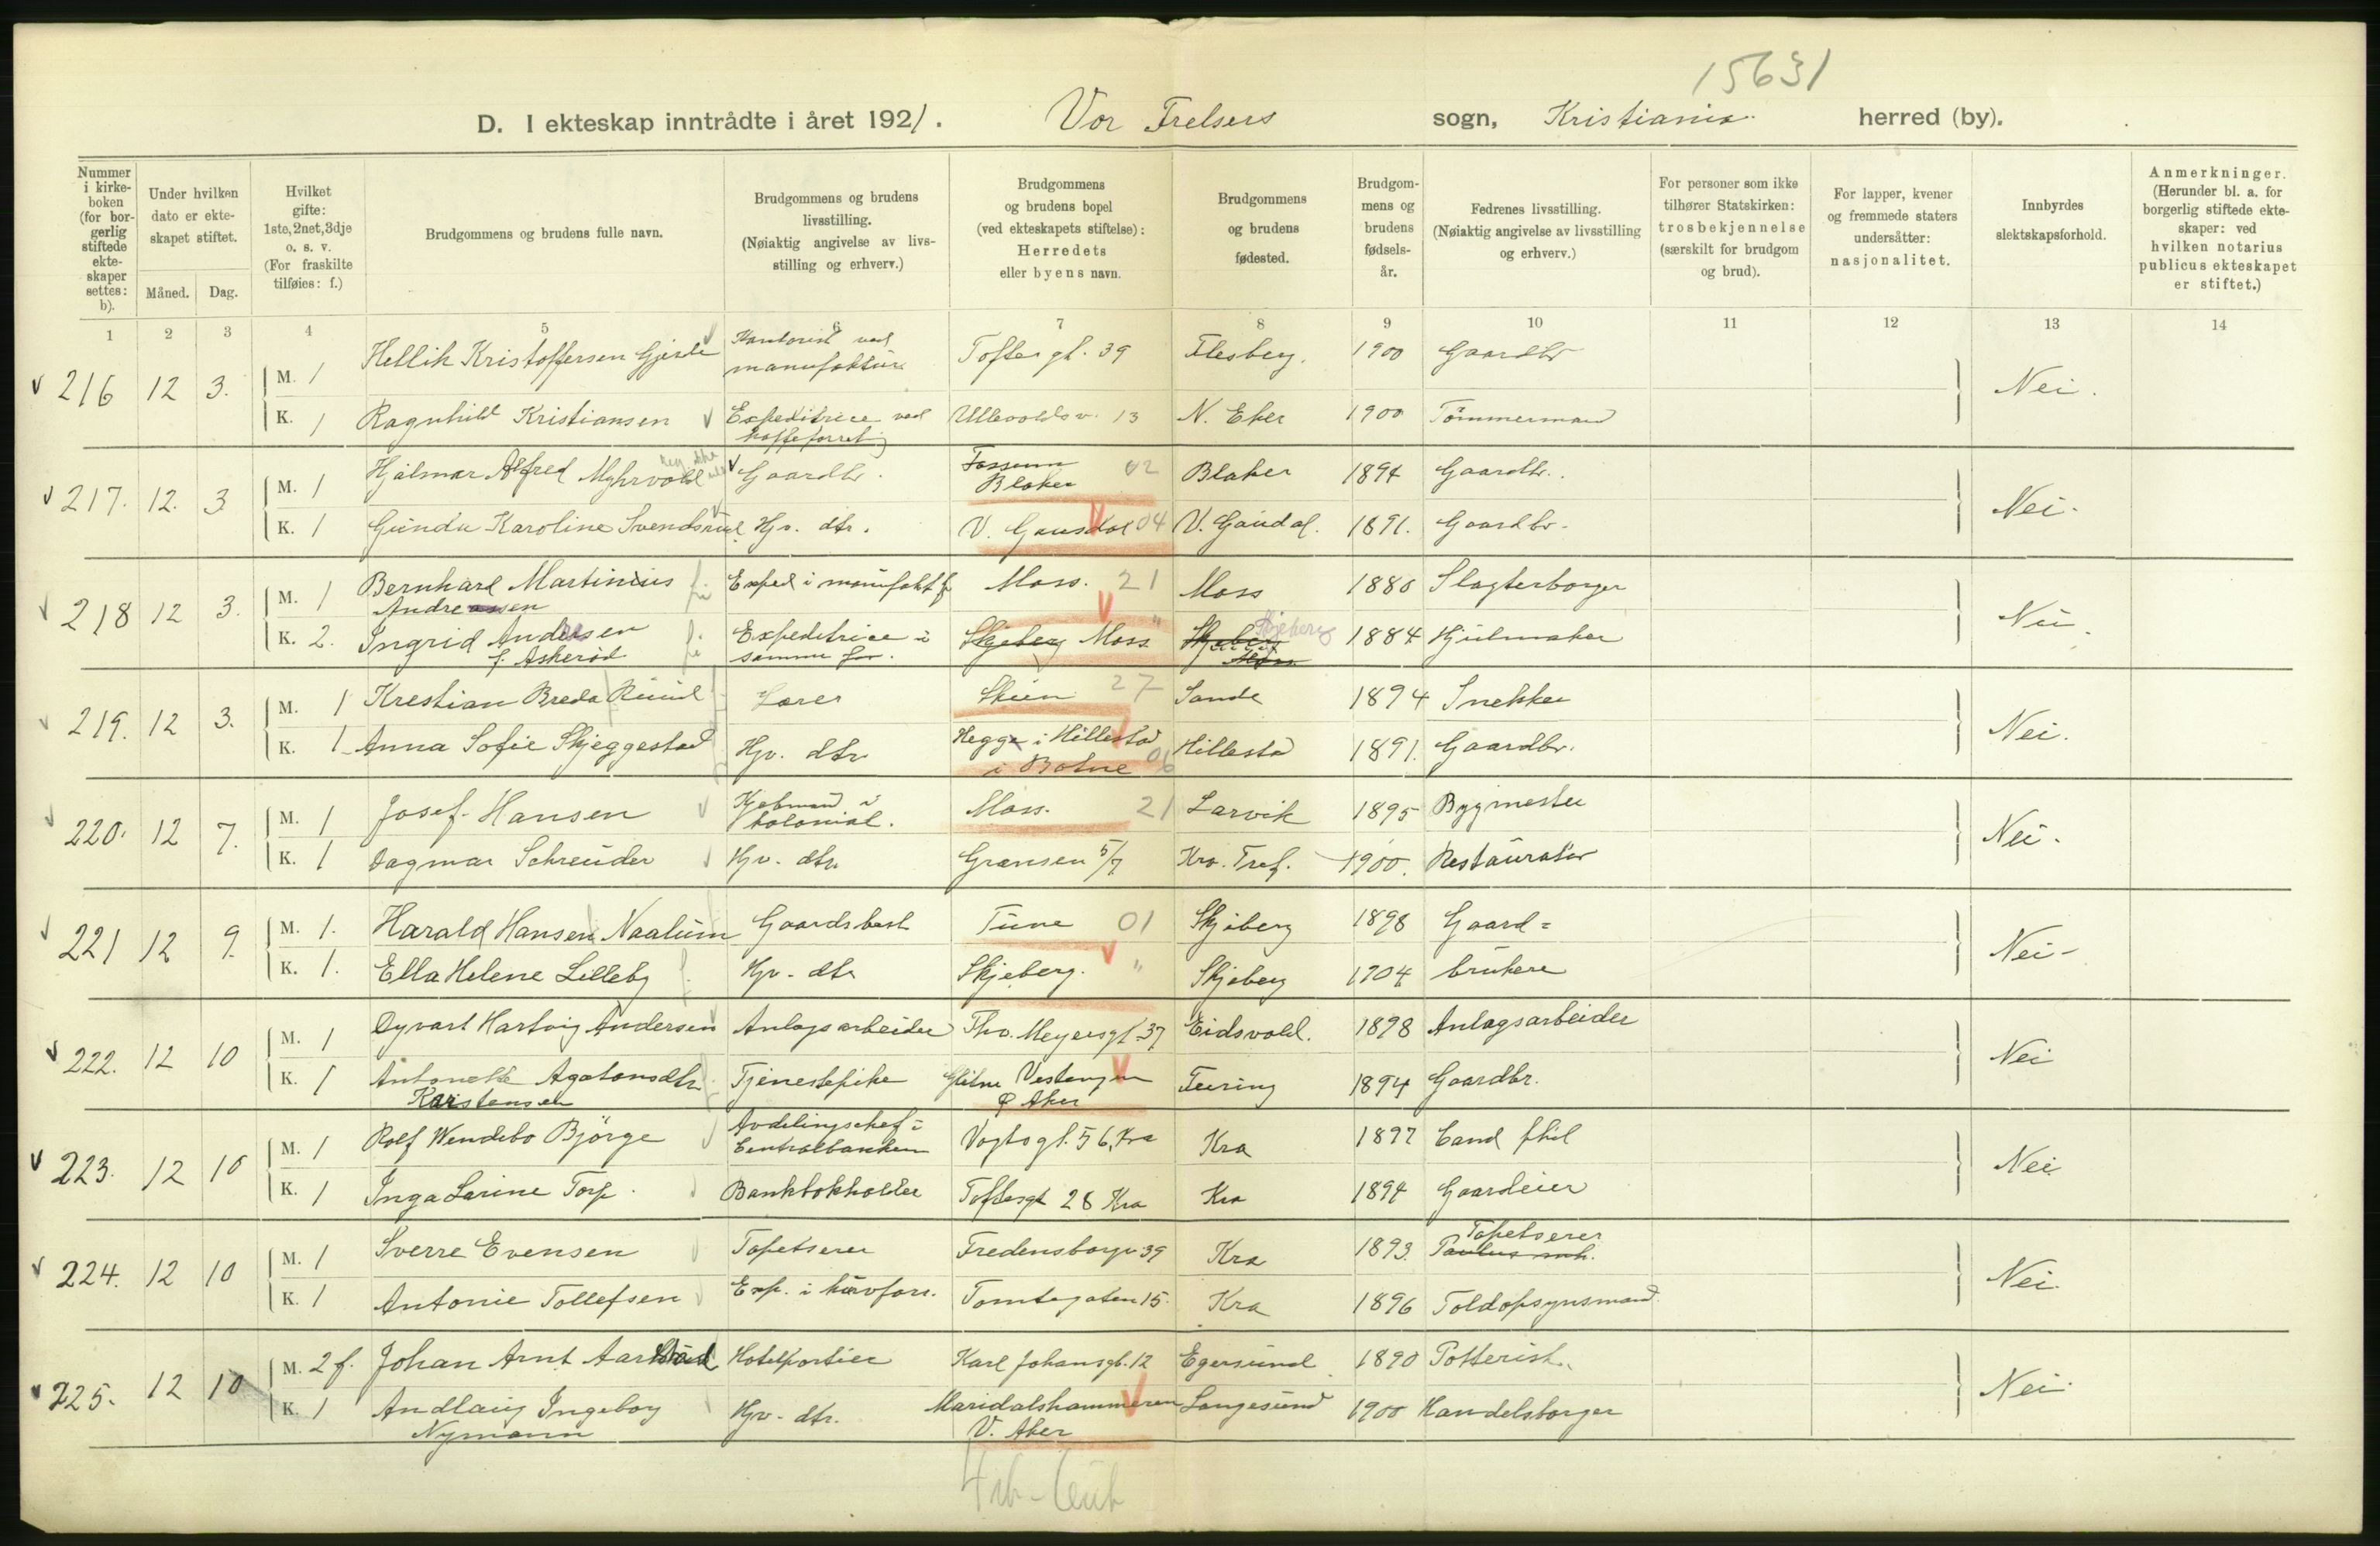 15631
D. I ekteskap inntrådte i året 1921. Vor Frelsers sogn, Kristiania herred (by).
Nummer i kirkeboken (for borgerlig stiftede ekteskaper settes: b).
Under hvilken dato er ekteskapet stiftet. Måned. Dag.
Hvilket gifte: 1ste, 2net, 3dje o. s. v. (For fraskilte tilføies: f.)
Brudgommens og brudens fulle navn.
Brudgommens og brudens livsstilling. (Nøiaktig angivelse av livsstilling og erhverv.)
Brudgommens og brudens bopel (ved ekteskapets stiftelse): Herredets eller byens navn.
Brudgommens og brudens fødested.
Brudgommens og brudens fødselsår.
Fedrenes livsstilling. (Nøiaktig angivelse av livsstilling og erhverv.)
For personer som ikke tilhører Statskirken: trosbekjennelse (særskilt for brudgom og brud).
For lapper, kvener og fremmede staters undersåtter: nasjonalitet.
Innbyrdes slektskapsforhold.
Anmerkninger. (Herunder bl. a. for borgerlig stiftede ekteskaper: ved hvilken notarius publicus ekteskapet er stiftet.)
1 2 3 4 5 6 7 8 9 10 11 12 13 14
216 12 3. M. 1 Hellik Kristoffersen Kontorist ved manufaktur Toftesgt. 39 Flesberg. 1900 Gaardbr Nei.
K. 1 Ragnhild Kristiansen Expeditrice ved kaffeforretg Ullevoldsv. 13 N. Eker 1900 Tömmermand
217. 12. 3 M. 1 Hjalmar Alfred Myhrvold Gaardbr. Fossum Blaker 02 Blaker 1894 Gaardbr. Nei.
K. 1 Gunda Karoline Svendsrud Hjv. dtr. V. Gausdal 04 V. Gausdal. 1891. Gaardbr.
218 12 3. M. 1 Bernhard Martinius Andreassen Exped i manufakt f Moss. 21 Moss 1880 Slagterborger Nei.
K. 2. Ingrid Andersen f. Askeröd Expeditrice i samme for. Skjeberg Moss " Skjeberg Moss Skjeberg 1884 Hjulmaker
219. 12 3. M. 1 Krestian Breda Ruud Lærer Skien 27 Sande 1894 Snekker Nei.
K. 1 Anna Sofie Skjeggestad Hjv. dtr Hegge i Hillestad i Botne 06 Hillestad 1891. Gaardbr.
220. 12 7. M. 1 Josef Hansen Kjøbmand i kolonial. Moss. 21 Larvik 1895 Bygmester Nei.
K. 1 Dagmar Schreuder Hjv. dtr. Grænsen 5/7 Kra. Tref. 1900. Restauratør
221 12 9. M. 1. Harald Hansen Naalum Gaardsbest. Tune 01 Skjeberg 1898 Gaard= Nei-
K. 1. Ella Helene Lilleby Hjv. dtr Skjeberg. " Skjeberg 1904 brukere
222. 12 10 M. 1 Dyvart Hartvig Andersen Anlægsarbeider Tho. Meyersgt. 37 Eidsvold. 1898 Anlægsarbeider Nei
K. 1 Antonette Agatonsdtr Karstensen Tjenestepike Vestengen Ø Aker Feiring 1894 Gaardbr.
223. 12 10 M. 1 Rolf Wendelbo Bjørge Avdelingschef i Centralbanken Vogtsgt. 56, Kra Kra 1897 Cand phil Nei
K. 1 Inga Larine Torp. Bankbokholder Toftesgt 28 Kra Kra 1894 Gaardeier
224. 12 10 M. 1 Sverre Evensen Tapetserer Fredensborgv 39 Kra 1893. Tapetserer Nei.
K. 1 Antonie Tollefsen Exp. i kurvforr. Tomtegaten 15. Kra 1896 Toldopsynsmand.
225. 12 10 M. 2 f. Johan Arnt Aarstad Hotelportier Karl Johansgt. 12 Egersund 1890 Potterist. Nei.
K. 1 Andlaug Ingeborg Nymann Hjv. dtr. Maridalshammeren V. Aker Langesund 1900 Handelsborger